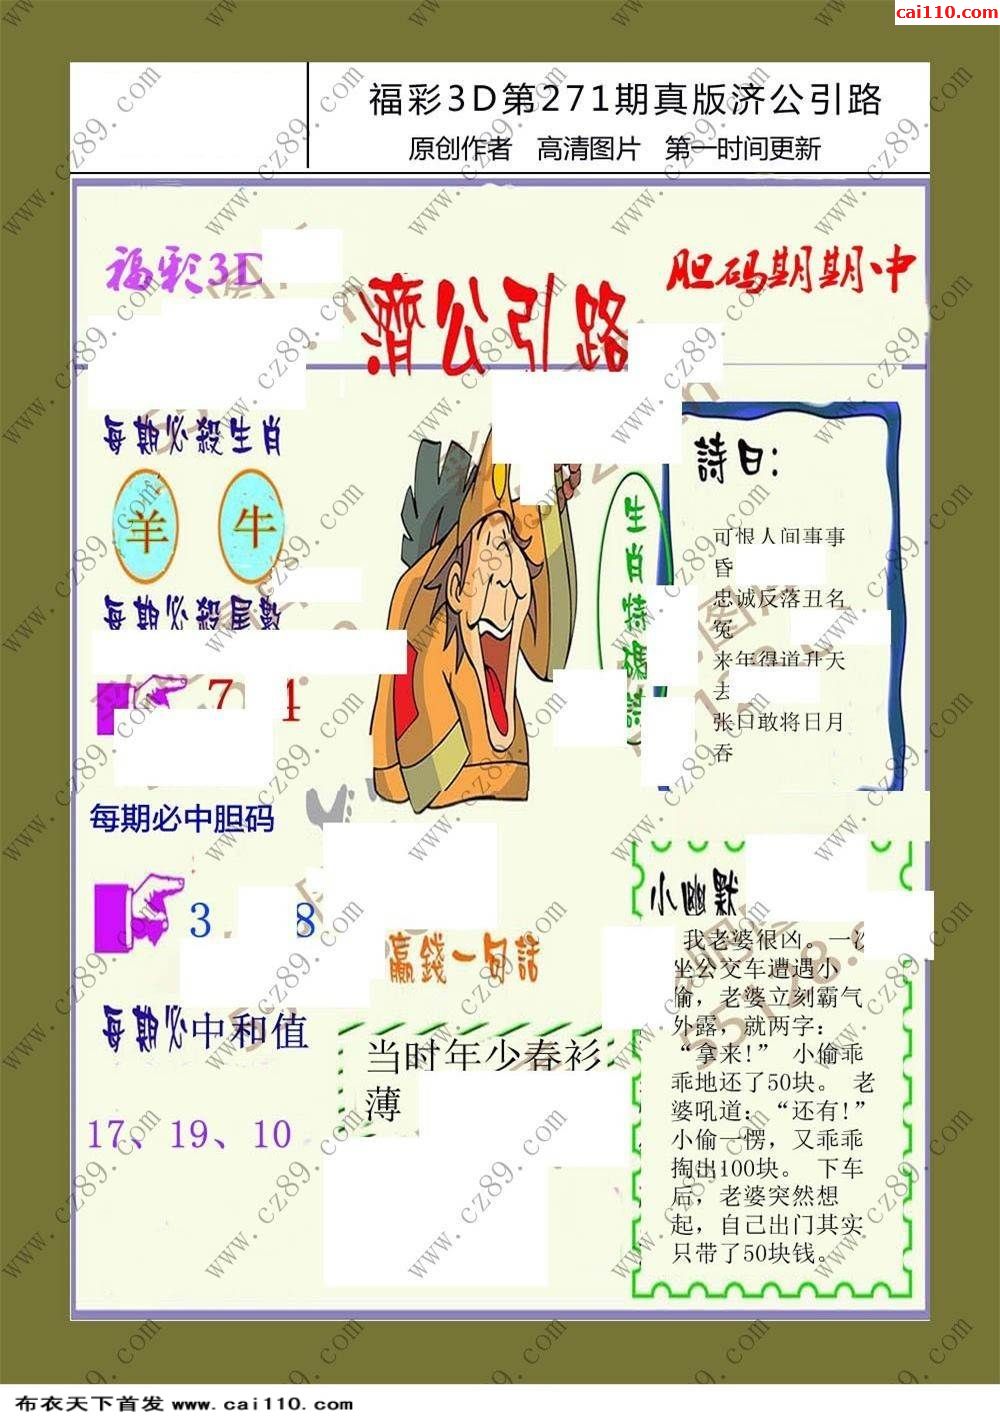 cai110.com
福彩3D第271期真版济公引路
原创作者 高清图片 第一时间更新
福彩3D
濟公引路
胆码期期中
每期必殺生肖
羊 牛
每期必殺尾數
7 4
每期必中胆码
3 8
每期必中和值
17、19、10
生肖特碼詩
詩曰:
可恨人间事事
昏
忠诚反落丑名
冤
来年得道升天
去
张口敢将日月
吞
贏錢一句話
当时年少春衫
薄
小幽默
我老婆很凶。一次
坐公交车遭遇小
偷，老婆立刻霸气
外露，就两字：
“拿来!” 小偷乖
乖地还了50块。 老
婆吼道：“还有!”
小偷一愣，又乖乖
掏出100块。 下车
后，老婆突然想
起，自己出门其实
只带了50块钱。
www.cz89.com
布衣天下首发 www.cai110.com